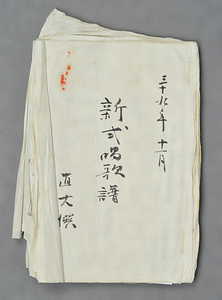 三十九年十一月
新式唱歌譜
直文撰